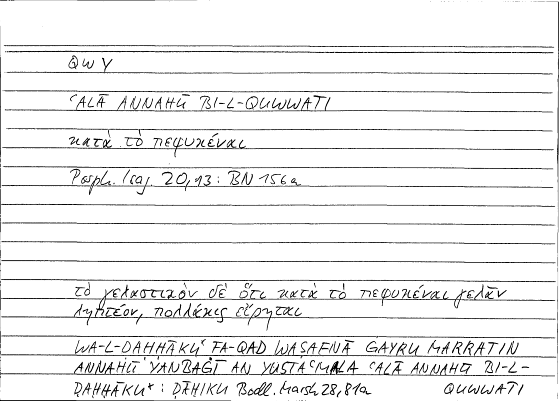 QWY
ʿALĀ ANNAHŪ BI-L-QUWWATI
κατὰ τὸ πεφυκέναι
Porph. Isag. 20,13 : BN 156a
τὸ γελαστικὸν δὲ ὅτι κατὰ τὸ πεφυκέναι γελᾶν
ληπτέον, πολλάκις εἴρηται
WA-L-ḌAḤḤĀKU* FA-QAD WAṢAFNĀ ĠAYRU MARRATIN
ANNAHŪ YANBAĠĪ AN YUSTAʿMALA ʿALĀ ANNAHŪ BI-L-
ḌAḤḤĀKU* : ḌĀḤIKU Bodl. Marsh 28,81a QUWWATI